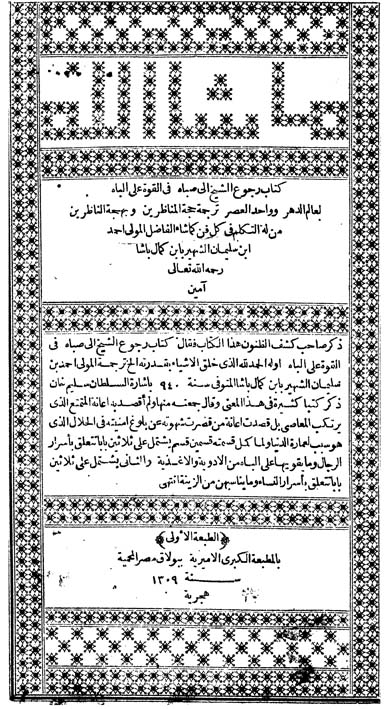 ما شا الله
كتاب رجوع الشيخ الى صباه فى القوة على الباه
لعالم الدهر وواحد العصر ترجمة حجة المناظرين وبهجة الناظرين
من له التكلم فى كل فن كما شاء الفاضل المولى احمد
ابن سليمان الشهير بابن كمال باشا
رحمه الله تعالى
آمين
ذكر صاحب كشف الظنون هذا الكتاب فقال كتاب رجوع الشيخ الى صباه فى
القوة على الباه اوله الحمد لله الذى خلق الاشياء بقدرته الخ ترجمة المولى احمد بن
سليمان الشهير بابن كمال باشا المتوفى سنة ٩٤٠ باشارة السلطان سليم خان
ذكر كتبا كثيرة فى هذا المعنى وقال جمعته منها ولم أقصد به اعانة المتمتع الذى
يرتكب المعاصى بل قصدت اعانة من قصرت شهوته عن بلوغ امنيته فى الحلال الذى
هو سبب لعمارة الدنيا ولما كمل قسمته قسمين قسم يشتمل على ثلاثين بابا تتعلق بأسرار
الرجال وما يقويها على الباه من الادوية والاغذية والثانى يشتمل على ثلاثين
بابا تتعلق بأسرار النساء وما يناسبهن من الزينة انتهى
﴿الطبعة الاولى﴾
بالمطبعة الكبرى الاميرية ببولاق مصر المحمية
سنة ١٣٠٩
هجرية